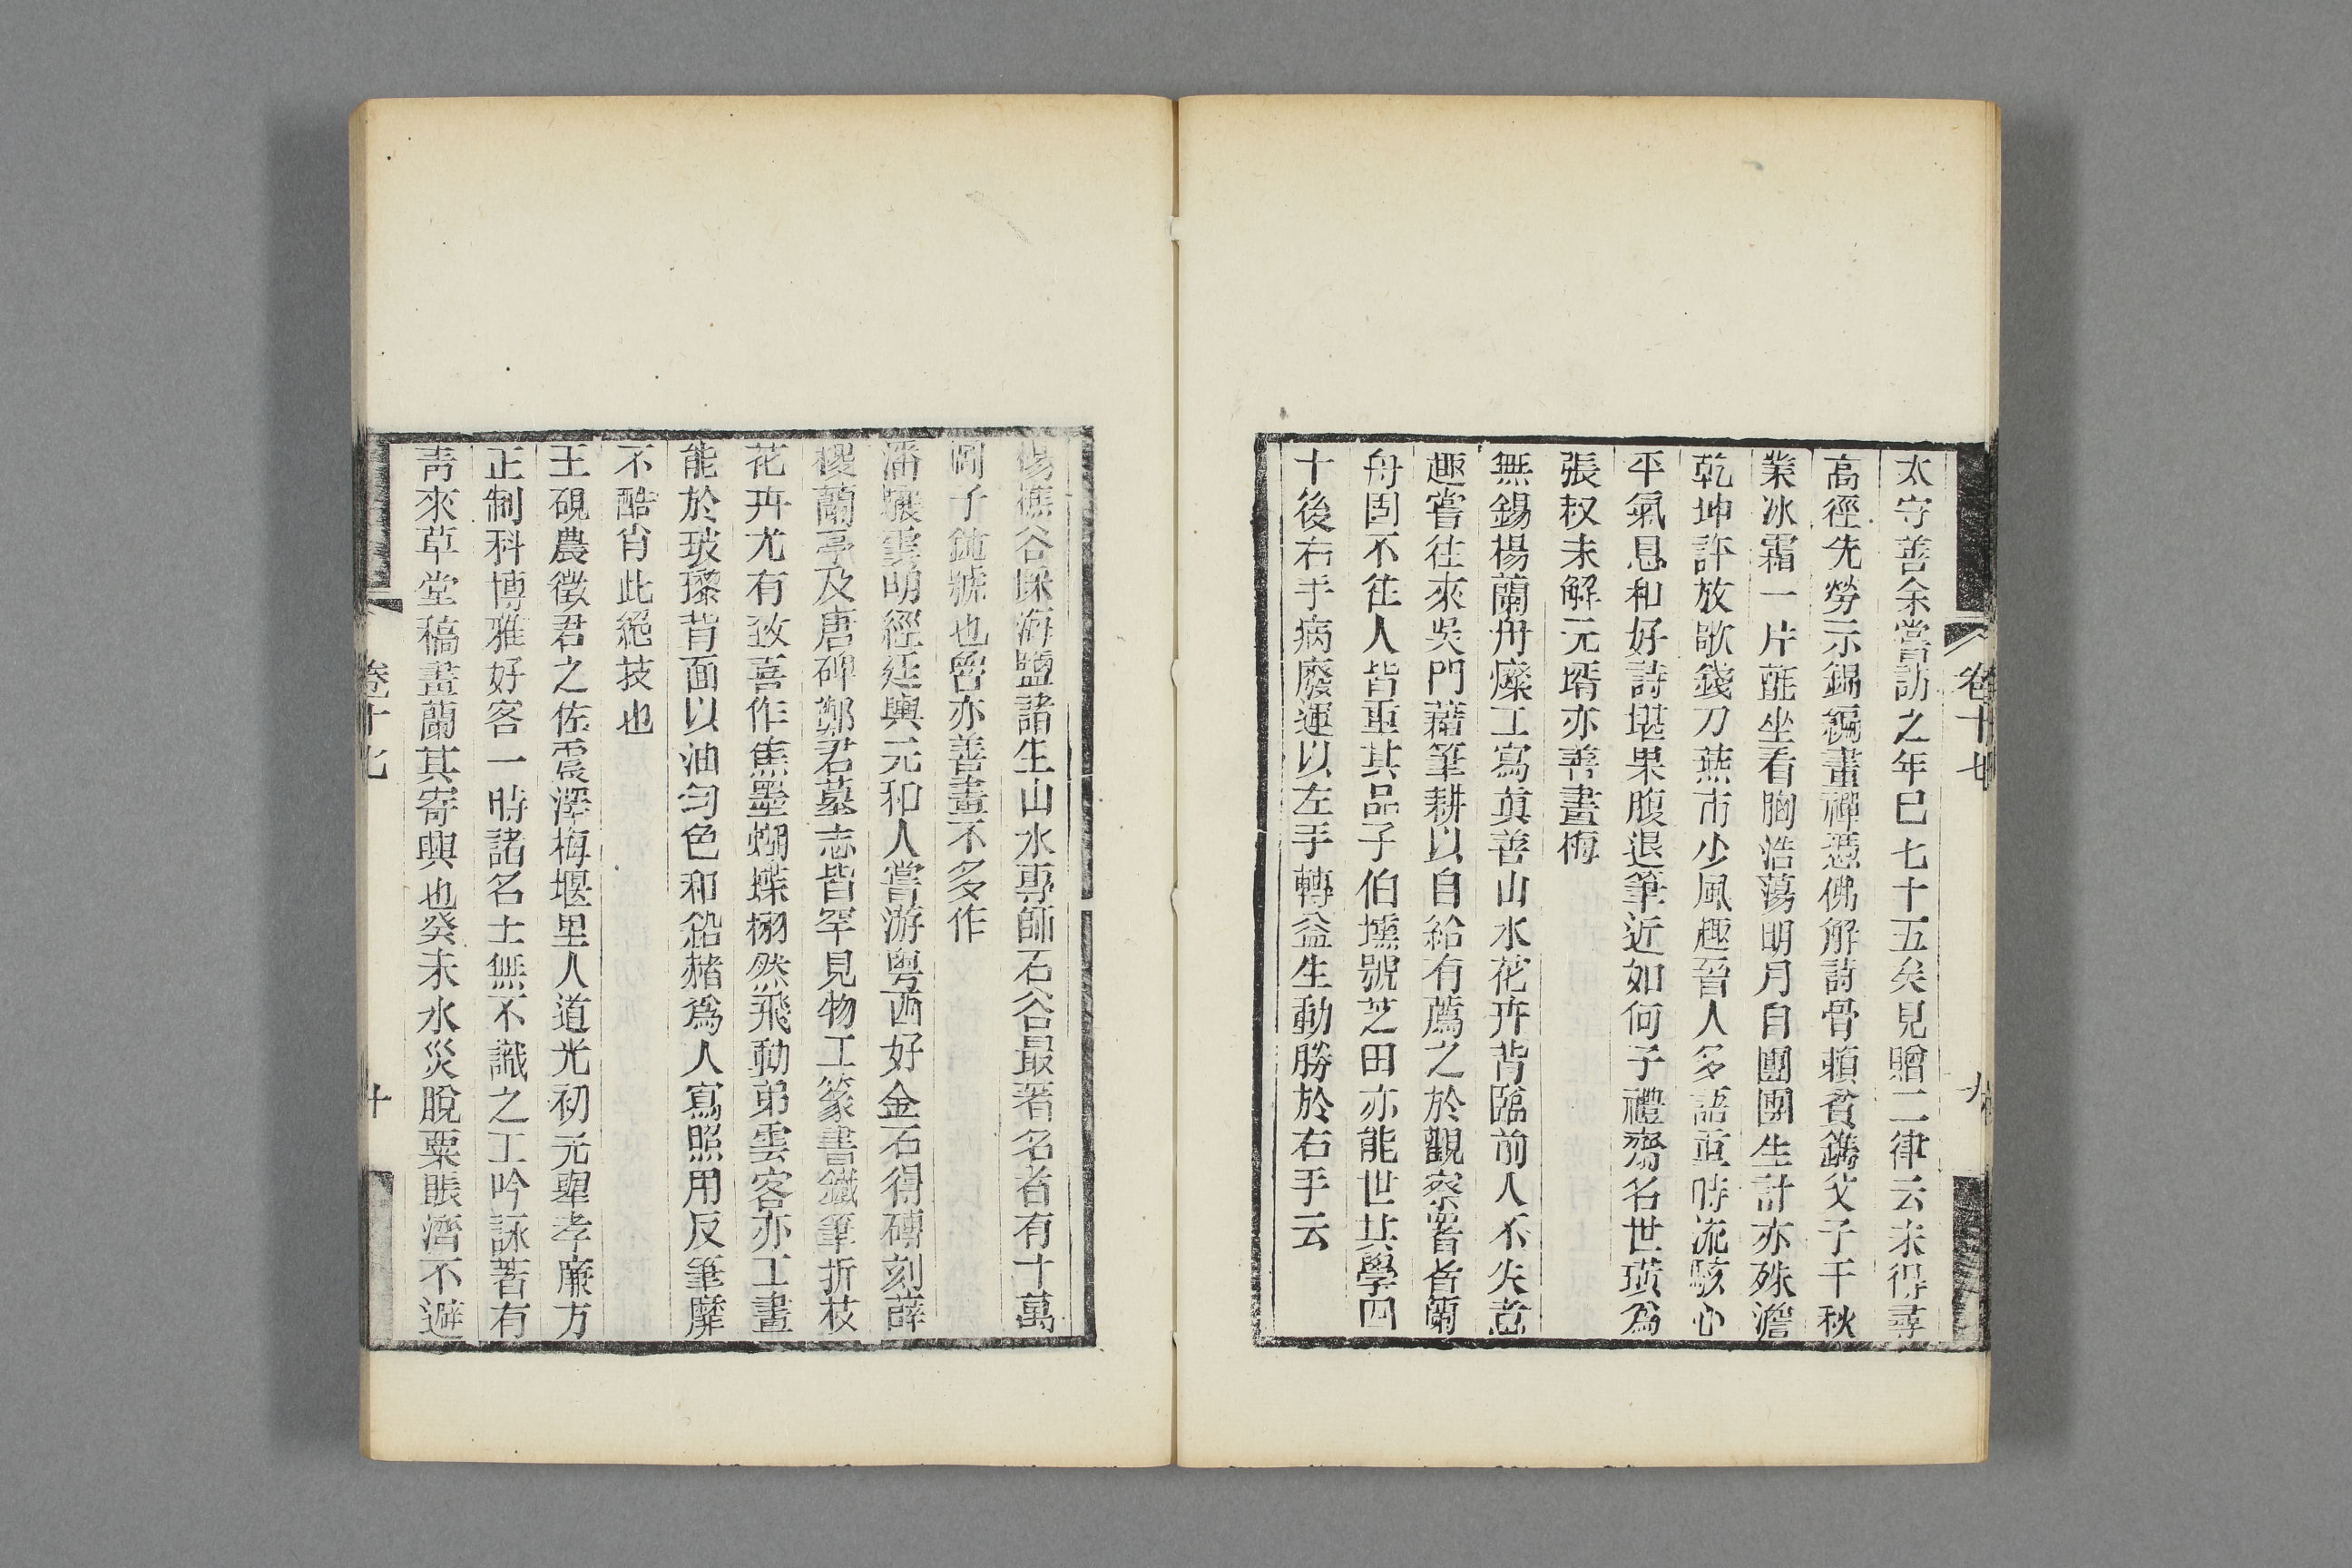 太守善余嘗訪之年巳七十五矣見贈二律云未得尋
高徑先勞示錦編畫禪憑佛解詩骨賴貧鐫父子千秋
業冰霜一片氈坐看胸浩蕩明月自團團生計亦殊澹
乾坤許放歌錢刀燕市少風趣晉人多語直時流駭心
平氣息和好詩堪果腹退筆近如何子禮齋名世璜爲
張叔未解元壻亦善畫梅
無錫楊蘭舟燦工寫眞善山水花卉背臨前人不失意
趣嘗往來吳門藉筆耕以自給有薦之於觀察署者蘭
舟固不往人皆重其品子伯壎號芝田亦能世其學四
十後右手病廢運以左手轉益生動勝於右手云
楊樵谷 海鹽諸生山水專師石谷最著名者有十萬
圖子 號也魯亦善畫不多作
潘 雲明經廷輿元和人嘗游粵西好金石得磚刻薛
稷蘭亭及唐碑鄭君墓志皆罕見物工篆書鐵筆折枝
花卉尤有致喜作焦墨蝴蝶栩然飛動弟雲客亦工畫
能於玻瓈背面以油勻色和鉛赭爲人寫照用反筆靡
不酷肖此絕技也
王硯農徵君之佐震澤梅堰里人道光初元舉孝廉方
正制科博雅好客一時諸名士無不識之工吟詠著有
青來草堂稿畫蘭其寄興也癸未水災脫粟賑濟不避
卷十七
九
卷十七
十